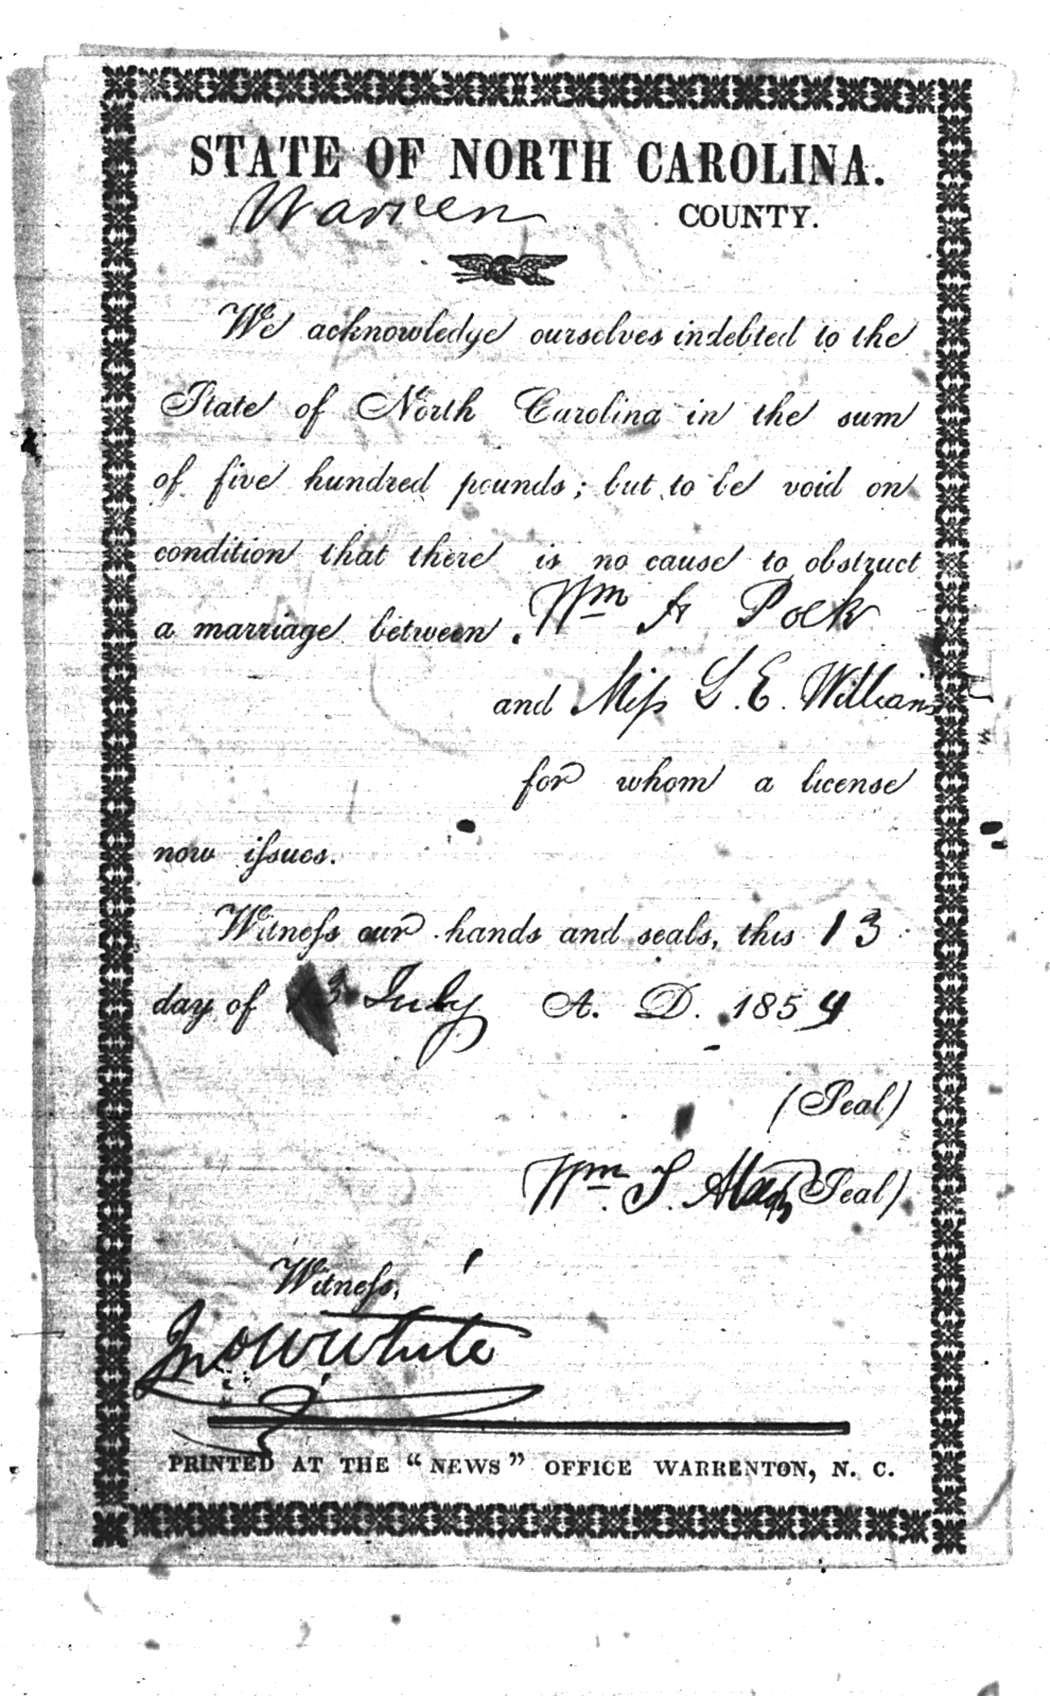 STATE OF NORTH CAROLINA.
Warren COUNTY.
We acknowledge ourselves indebted to the
State of North Carolina in the sum
of five hundred pounds; but to be void on
condition that there is no cause to obstruct
a marriage between Wm A Polk
and Miss L. E. Williams
for whom a license
now issues.
Witness our hands and seals, this 13
day of July A. D. 1854
(Seal)
Wm. T. (Seal)
Witness,
Jno W White
PRINTED AT THE "NEWS" OFFICE WARRENTON, N. C.